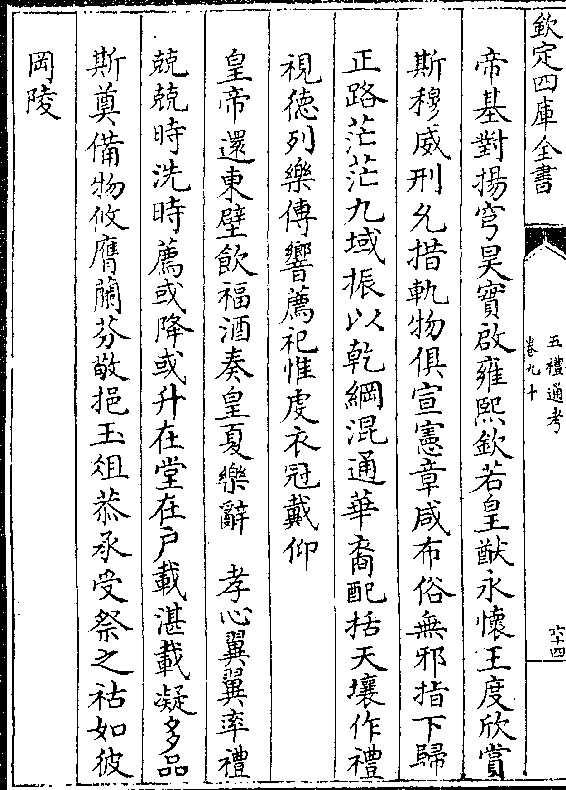 欽定四庫全書
五禮通考
卷九十
六十四
帝基對揚穹昊實啟雍熙欽若皇猷永懷王度欣賞
斯穆威刑允措軌物俱宣憲章咸布俗無邪指下歸
正路茫茫九域振以乾綱混通華裔配括天壤作禮
視德列樂傳響薦祀惟虔衣冠載仰
皇帝還東壁飲福酒奏皇夏樂辭　孝心翼翼率禮
兢兢時洗時薦或降或升在堂在户載湛載凝多品
斯奠備物攸膺蘭芬敬挹玉俎恭承受祭之祜如彼
岡陵